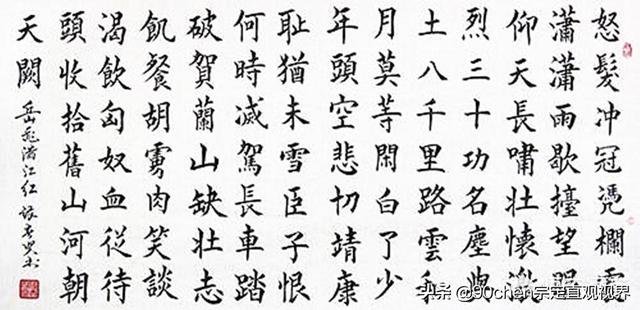 怒髮冲冠凴欄處
瀟瀟雨歇擡望眼
仰天長嘯壯懷激
烈三十功名塵與
土八千里路雲和
月莫等閑白了少
年頭空悲切靖康
耻猶未雪臣子恨
何時滅駕長車踏
破賀蘭山缺壯志
飢餐胡虜肉笑談
渴飲匈奴血從待
頭收拾舊山河朝
天闕
岳飛滿江紅
头条 @90chen宗定直观视界